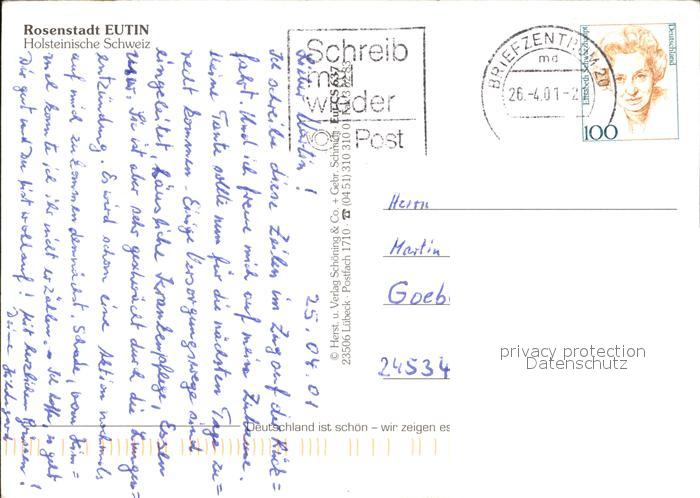 Rosenstadt EUTIN
Holsteinische Schweiz
Schreib
mal
wieder
Post
BRIEFZENTRUM 20
md
26.-4.01-2
Deutschland
100
25.04.01
Lieber Martin!
Ich schreibe diese Zeilen im Zug auf der Rück=
fahrt. Und ich freue mich auf mein Zuhause.
Meine Tante sollte nun für die nächsten Tage zu=
recht kommen. Einige Versorgungswege sind
eingeleitet, häusliche Krankenpflege, Essen
Sie ist aber sehr geschwächt durch die Lungen=
entzündung. Es wird schon eine Aktion nochmals
auf mich zukommen demnächst. Schade, vom
mal konnte ich ihr nicht erzählen. Ich hoffe, es geht
Dir gut und Du bist wohlauf! Mit herzlichen Grüßen!
Deine
© Herst. u. Verlag Schöning & Co. + Gebr. Schmidt
23506 Lübeck · Postfach 1710 · ☎ (04 51) 310 310
Herrn
Martin
Goeb
24534
privacy protection
Datenschutz
Deutschland ist schön – wir zeigen es